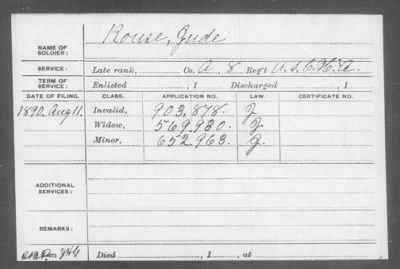 NAME OF SOLDIER: Rouse, Jude
SERVICE: Late rank, Co. A, 8 Reg't U.S.C.H.A.
TERM OF SERVICE: Enlisted , 1 Discharged , 1
DATE OF FILING. CLASS. APPLICATION NO. LAW. CERTIFICATE NO.
1890. Aug 11. Invalid, 903,878. J
Widow, 569,930. J
Minor, 652,963. J.
ADDITIONAL SERVICES:
REMARKS:
Died , 1 , at